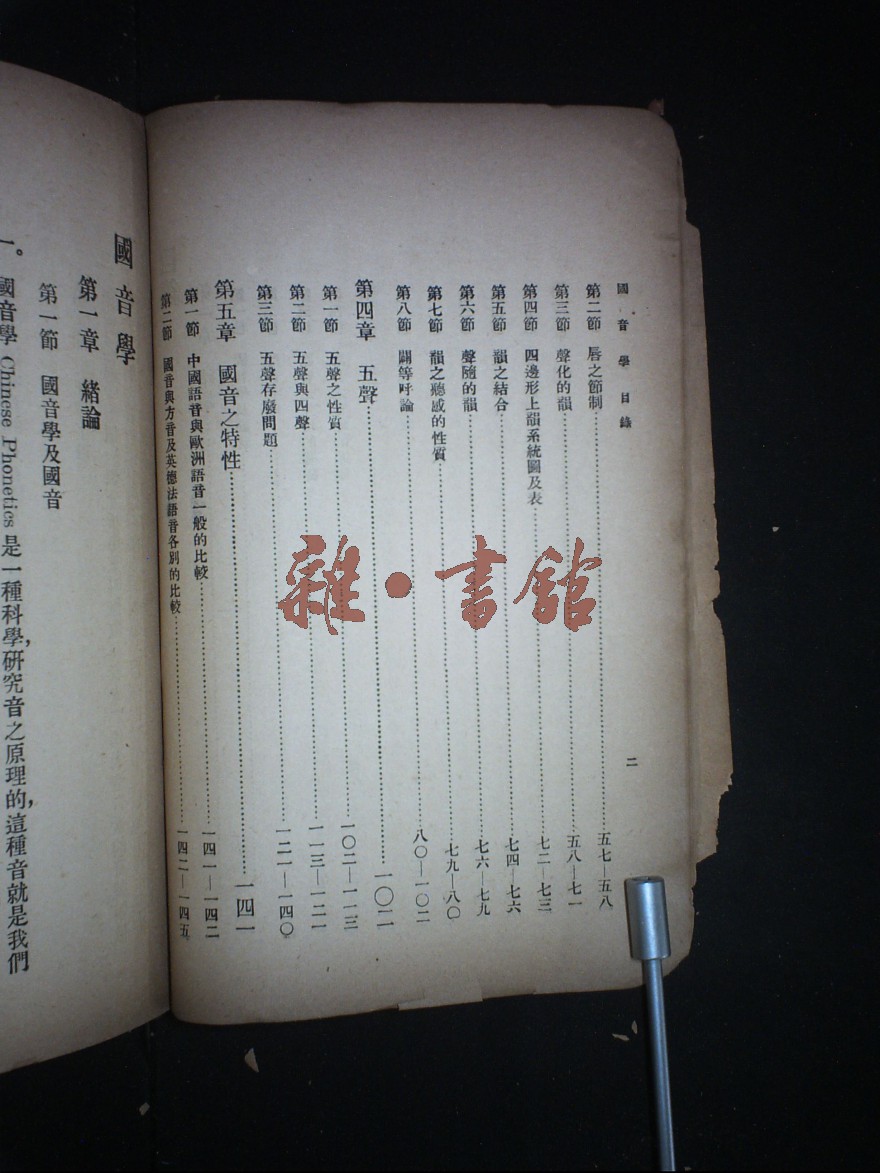 國音學目錄
二
第二節 唇之節制 五七—五八
第三節 聲化的韻 五八—七一
第四節 四邊形上韻系統圖及表 七二—七三
第五節 韻之結合 七四—七六
第六節 聲隨的韻 七六—七九
第七節 韻之聽感的性質 七九—八〇
第八節 闢等呼論 八〇—一〇二
第四章 五聲 一〇二
第一節 五聲之性質 一〇二—一一三
第二節 五聲與四聲 一一三—一二一
第三節 五聲存廢問題 一二一—一四〇
第五章 國音之特性 一四一
第一節 中國語音與歐洲語音一般的比較 一四一—一四二
第二節 國音與方音及英德法語音各別的比較 一四二—一四五
國音學
第一章 緒論
第一節 國音學及國音
一。 國音學 Chinese Phonetics 是一種科學,研究音之原理的,這種音就是我們
雜·書館